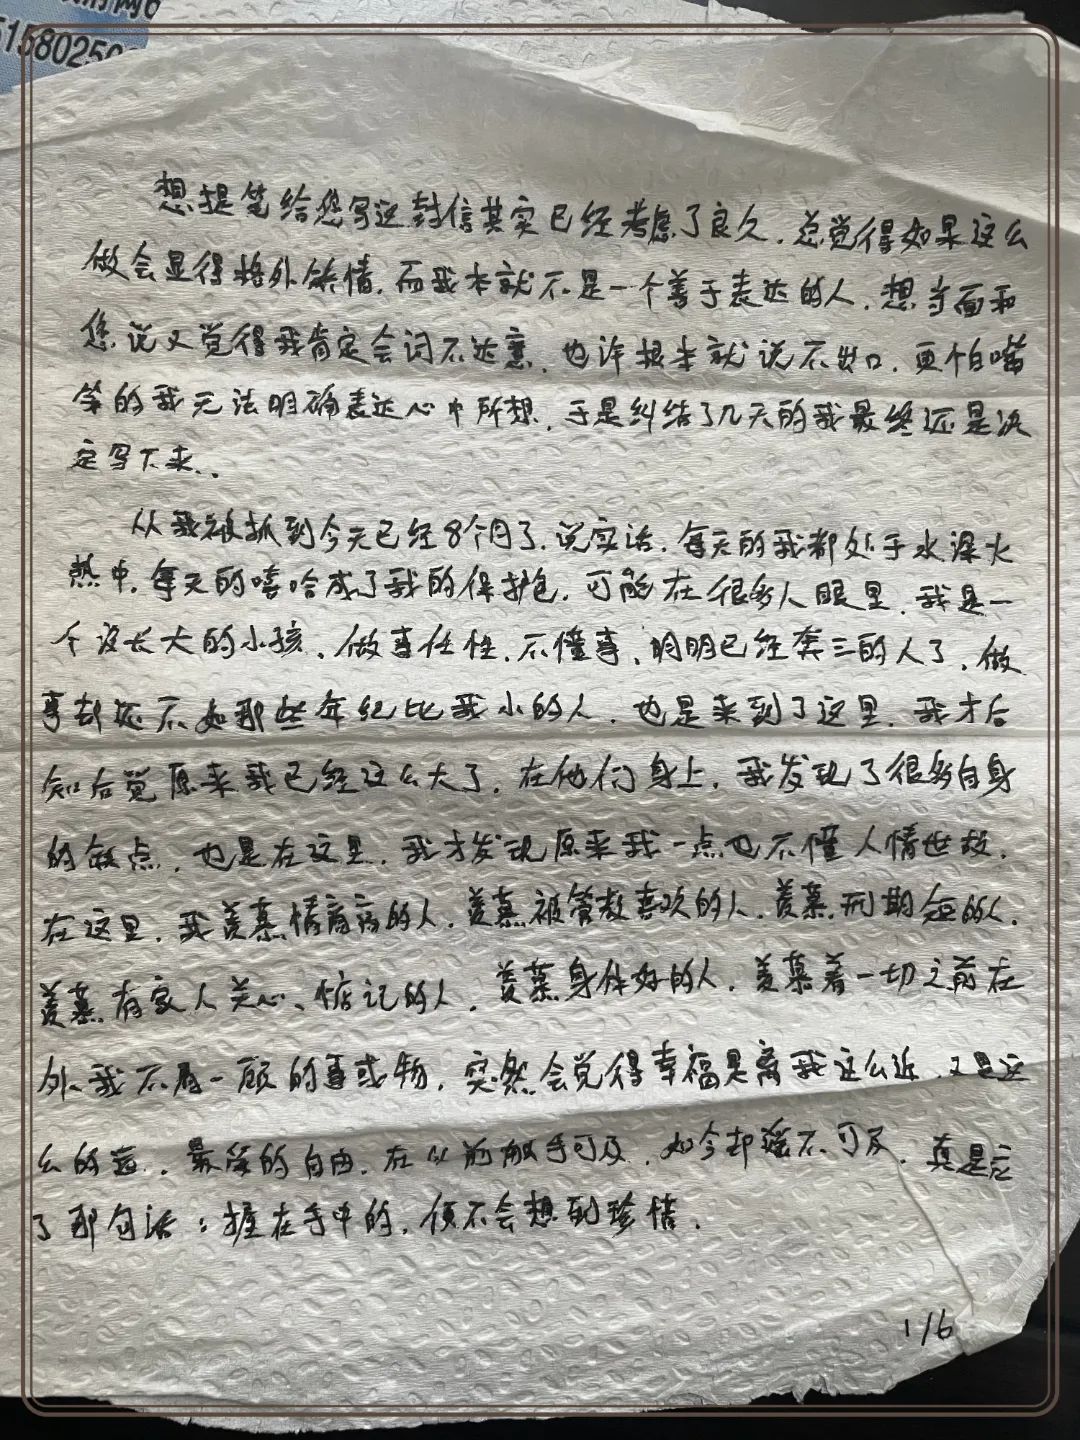 51580250
想提笔给您写这封信其实已经考虑了良久，总觉得如果这么
做会显得格外矫情，而我本就不是一个善于表达的人，想当面和
您说又觉得我肯定会词不达意，也许根本就说不出口，更怕嘴
笨的我无法明确表达心中所想，于是纠结了几天的我最终还是决
定写下来..
从我被抓到今天已经8个月了，说实话，每天的我都处于水深火
热中，每天的嘻哈成了我的保护色，可能在很多人眼里，我是一
个没长大的小孩、做事任性、不懂事，明明已经奔三的人了，做
事却还不如那些年纪比我小的人，也是来到了这里，我才后
知后觉原来我已经这么大了，在他们身上，我发现了很多自身
的缺点，也是在这里，我才发现原来我一点也不懂人情世故，
在这里，我羡慕情商高的人，羡慕被管教喜欢的人，羡慕刑期短的人，
羡慕有家人关心、惦记的人，羡慕身体好的人，羡慕着一切之前在
外我不屑一顾的事或物，突然会觉得幸福是离我这么近，又是这
么的远，最笨的自由，在从前触手可及，如今却遥不可及，真是应
了那句话：握在手中的，便不会想到珍惜.
1/6